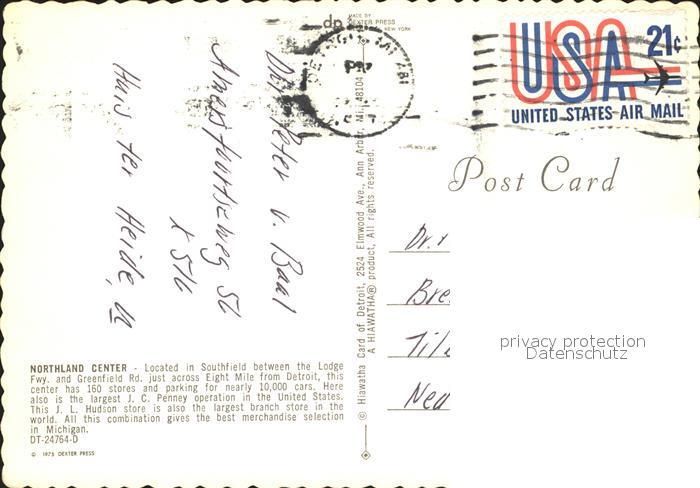 dp MADE BY
DEXTER PRESS
NEW YORK
DETROIT, MI 481
PM
USA 21¢
UNITED STATES AIR MAIL
Post Card
Peter v. Baal
56
Huis ter Heide,
Dr.
Bre
privacy protection
Datenschutz
NORTHLAND CENTER - Located in Southfield between the Lodge
Fwy. and Greenfield Rd. just across Eight Mile from Detroit, this
center has 160 stores and parking for nearly 10,000 cars. Here
also is the largest J. C. Penney operation in the United States.
This J. L. Hudson store is also the largest branch store in the
world. All this combination gives the best merchandise selection
in Michigan.
DT-24764-D
© 1973 DEXTER PRESS
© Hiawatha Card of Detroit, 2524 Elmwood Ave., Ann Arbor, Mi. 48104
A HIAWATHA® product, All rights reserved.